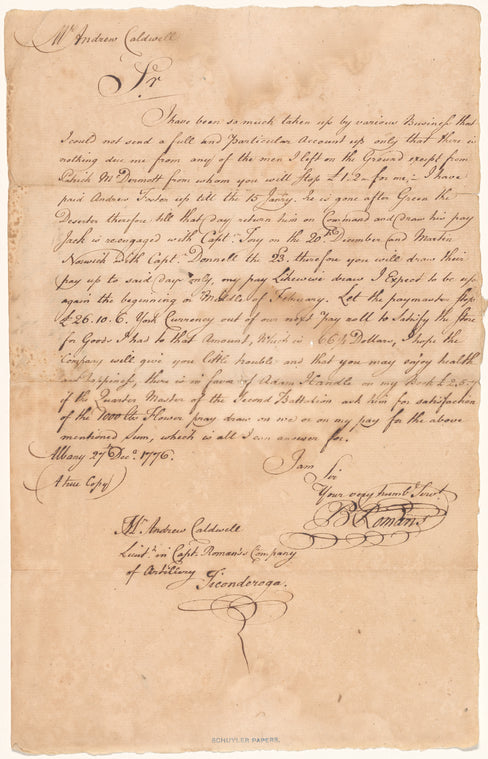 Mr. Andrew Caldwell
Sr
I have been so much taken up by various Business that
I could not send a full and Particular Account up only that there is
nothing due me from any of the men I left on the Ground exept from
Patrick McDermott from whom you will Stop £1.2 for me,- I have
paid Andrew Foster up till the 15 Janry. he is gone after Green the
Deserter therefore till that day return him on Command and draw his pay
Jack is reengaged with Capt. on the 20th December and Martin
with Capt. Donnell the 23. therefore you will draw their
pay up to said day only, my pay Likewise draw I Expect to be up
again the beginning or Middle of February. Let the paymaster stop
£26.10.6. York Currency out of our next Pay roll to Satisfy the Store
for Goods I had to that Amount, Which is 66¼ Dollars, I hope the
Company will give you little trouble and that you may enjoy health
and happiness, there is in favor of Adam Handle on my Book £2.5.7
of the Quarter Master of the Second Battalion ask him for satisfaction
of the 1000 lbs Flower pray draw on me or on my pay for the above
mentioned Sum, which is all I can answer for.
Albany 27 Decr. 1776.
I am Sir
(A true Copy)
Your very humbe. Servt.
B Romans
Mr. Andrew Caldwell
Lieut. in Capt. Romans's Company
of Artillery
Ticonderoga.
SCHUYLER PAPERS.